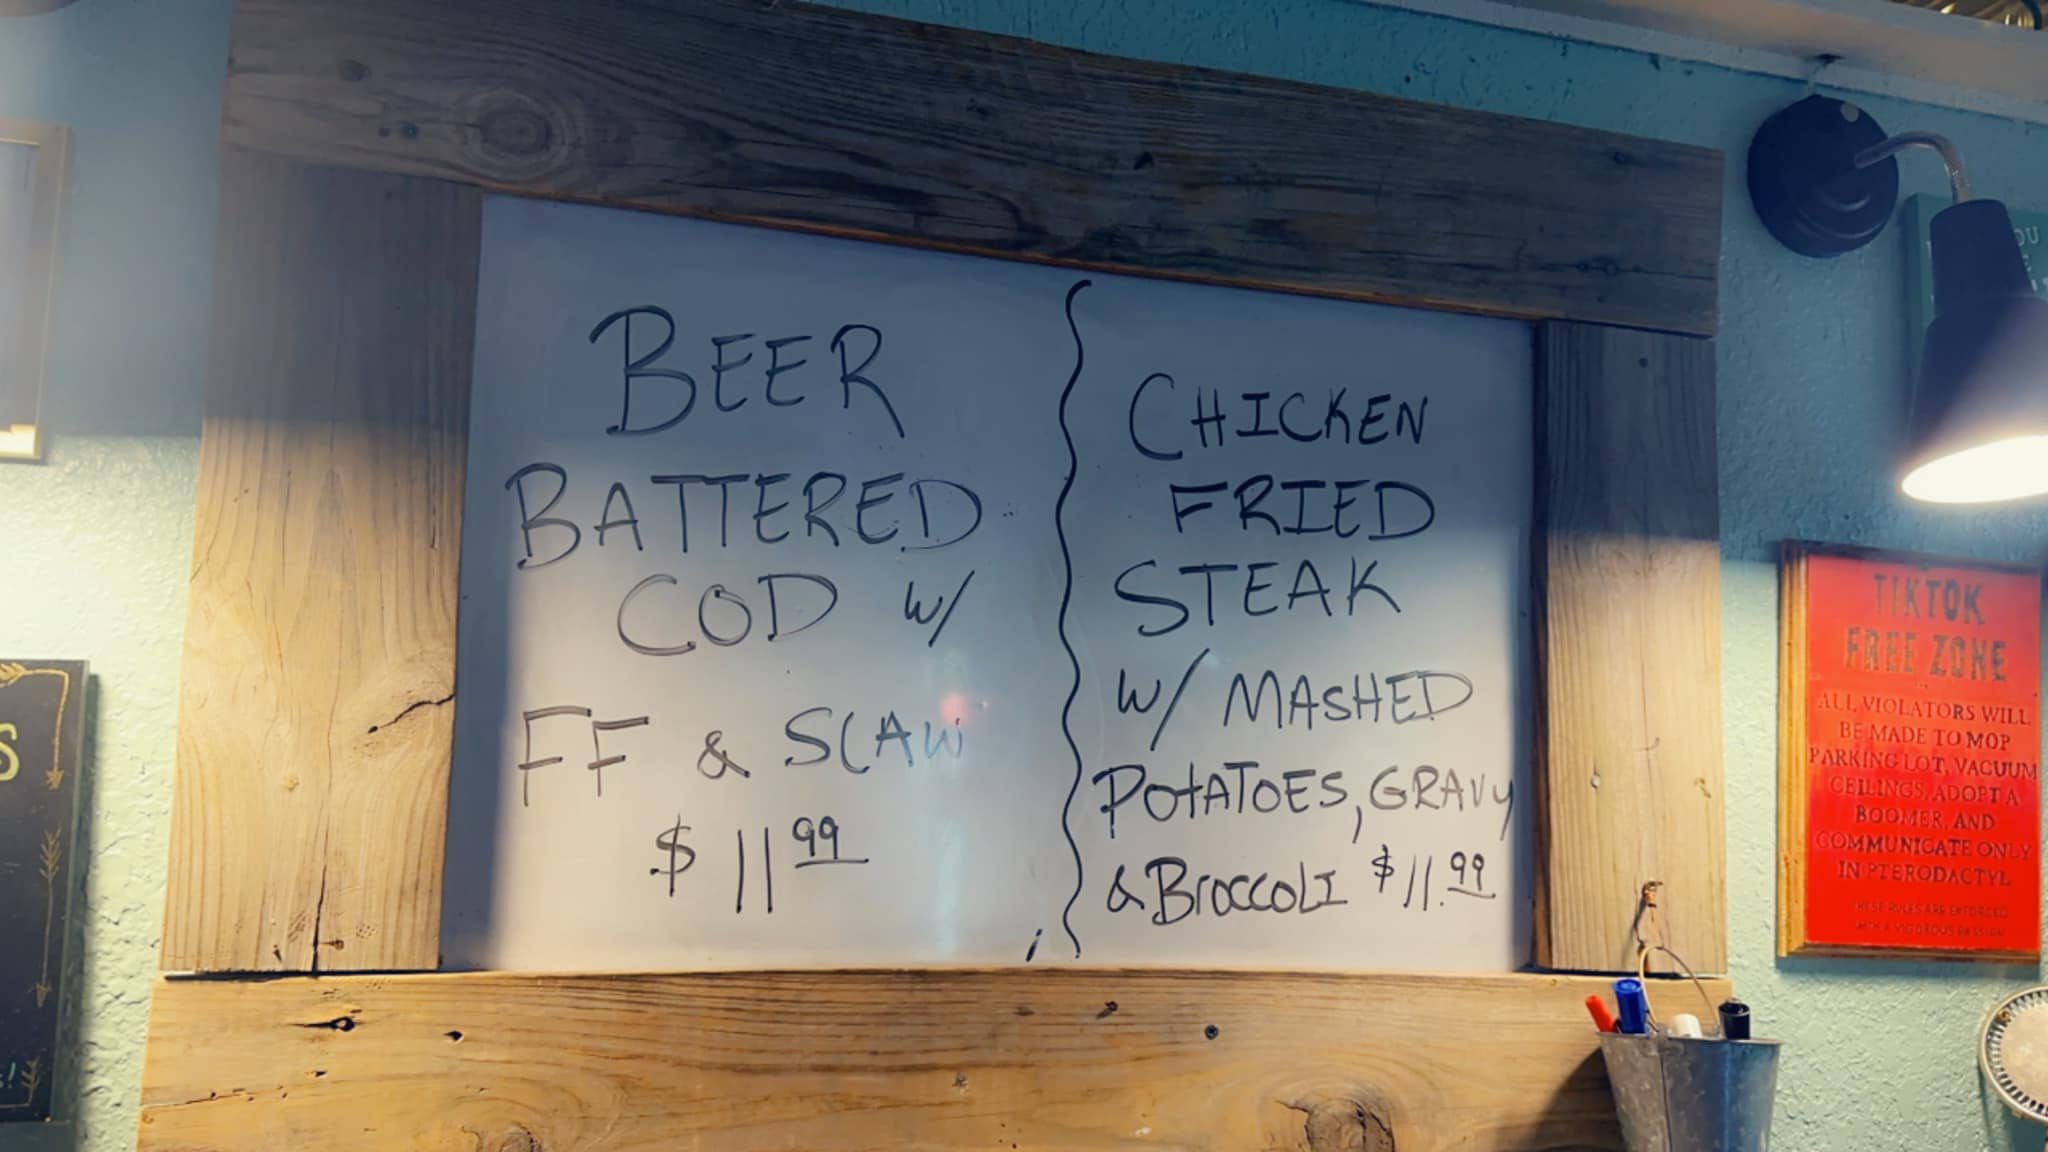 BEER
BATTERED
COD W/
FF & SLAW
$ 11 99
CHICKEN
FRIED
STEAK
W/ MASHED
POTATOES, GRAVY
& BROCCOLI $11.99
TIKTOK
FREE ZONE
ALL VIOLATORS WILL
BE MADE TO MOP
PARKING LOT, VACUUM
CEILINGS, ADOPT A
BOOMER, AND
COMMUNICATE ONLY
IN PTERODACTYL
THESE RULES ARE ENFORCED
WITH A VIGOROUS PASSION
OU
S
s!